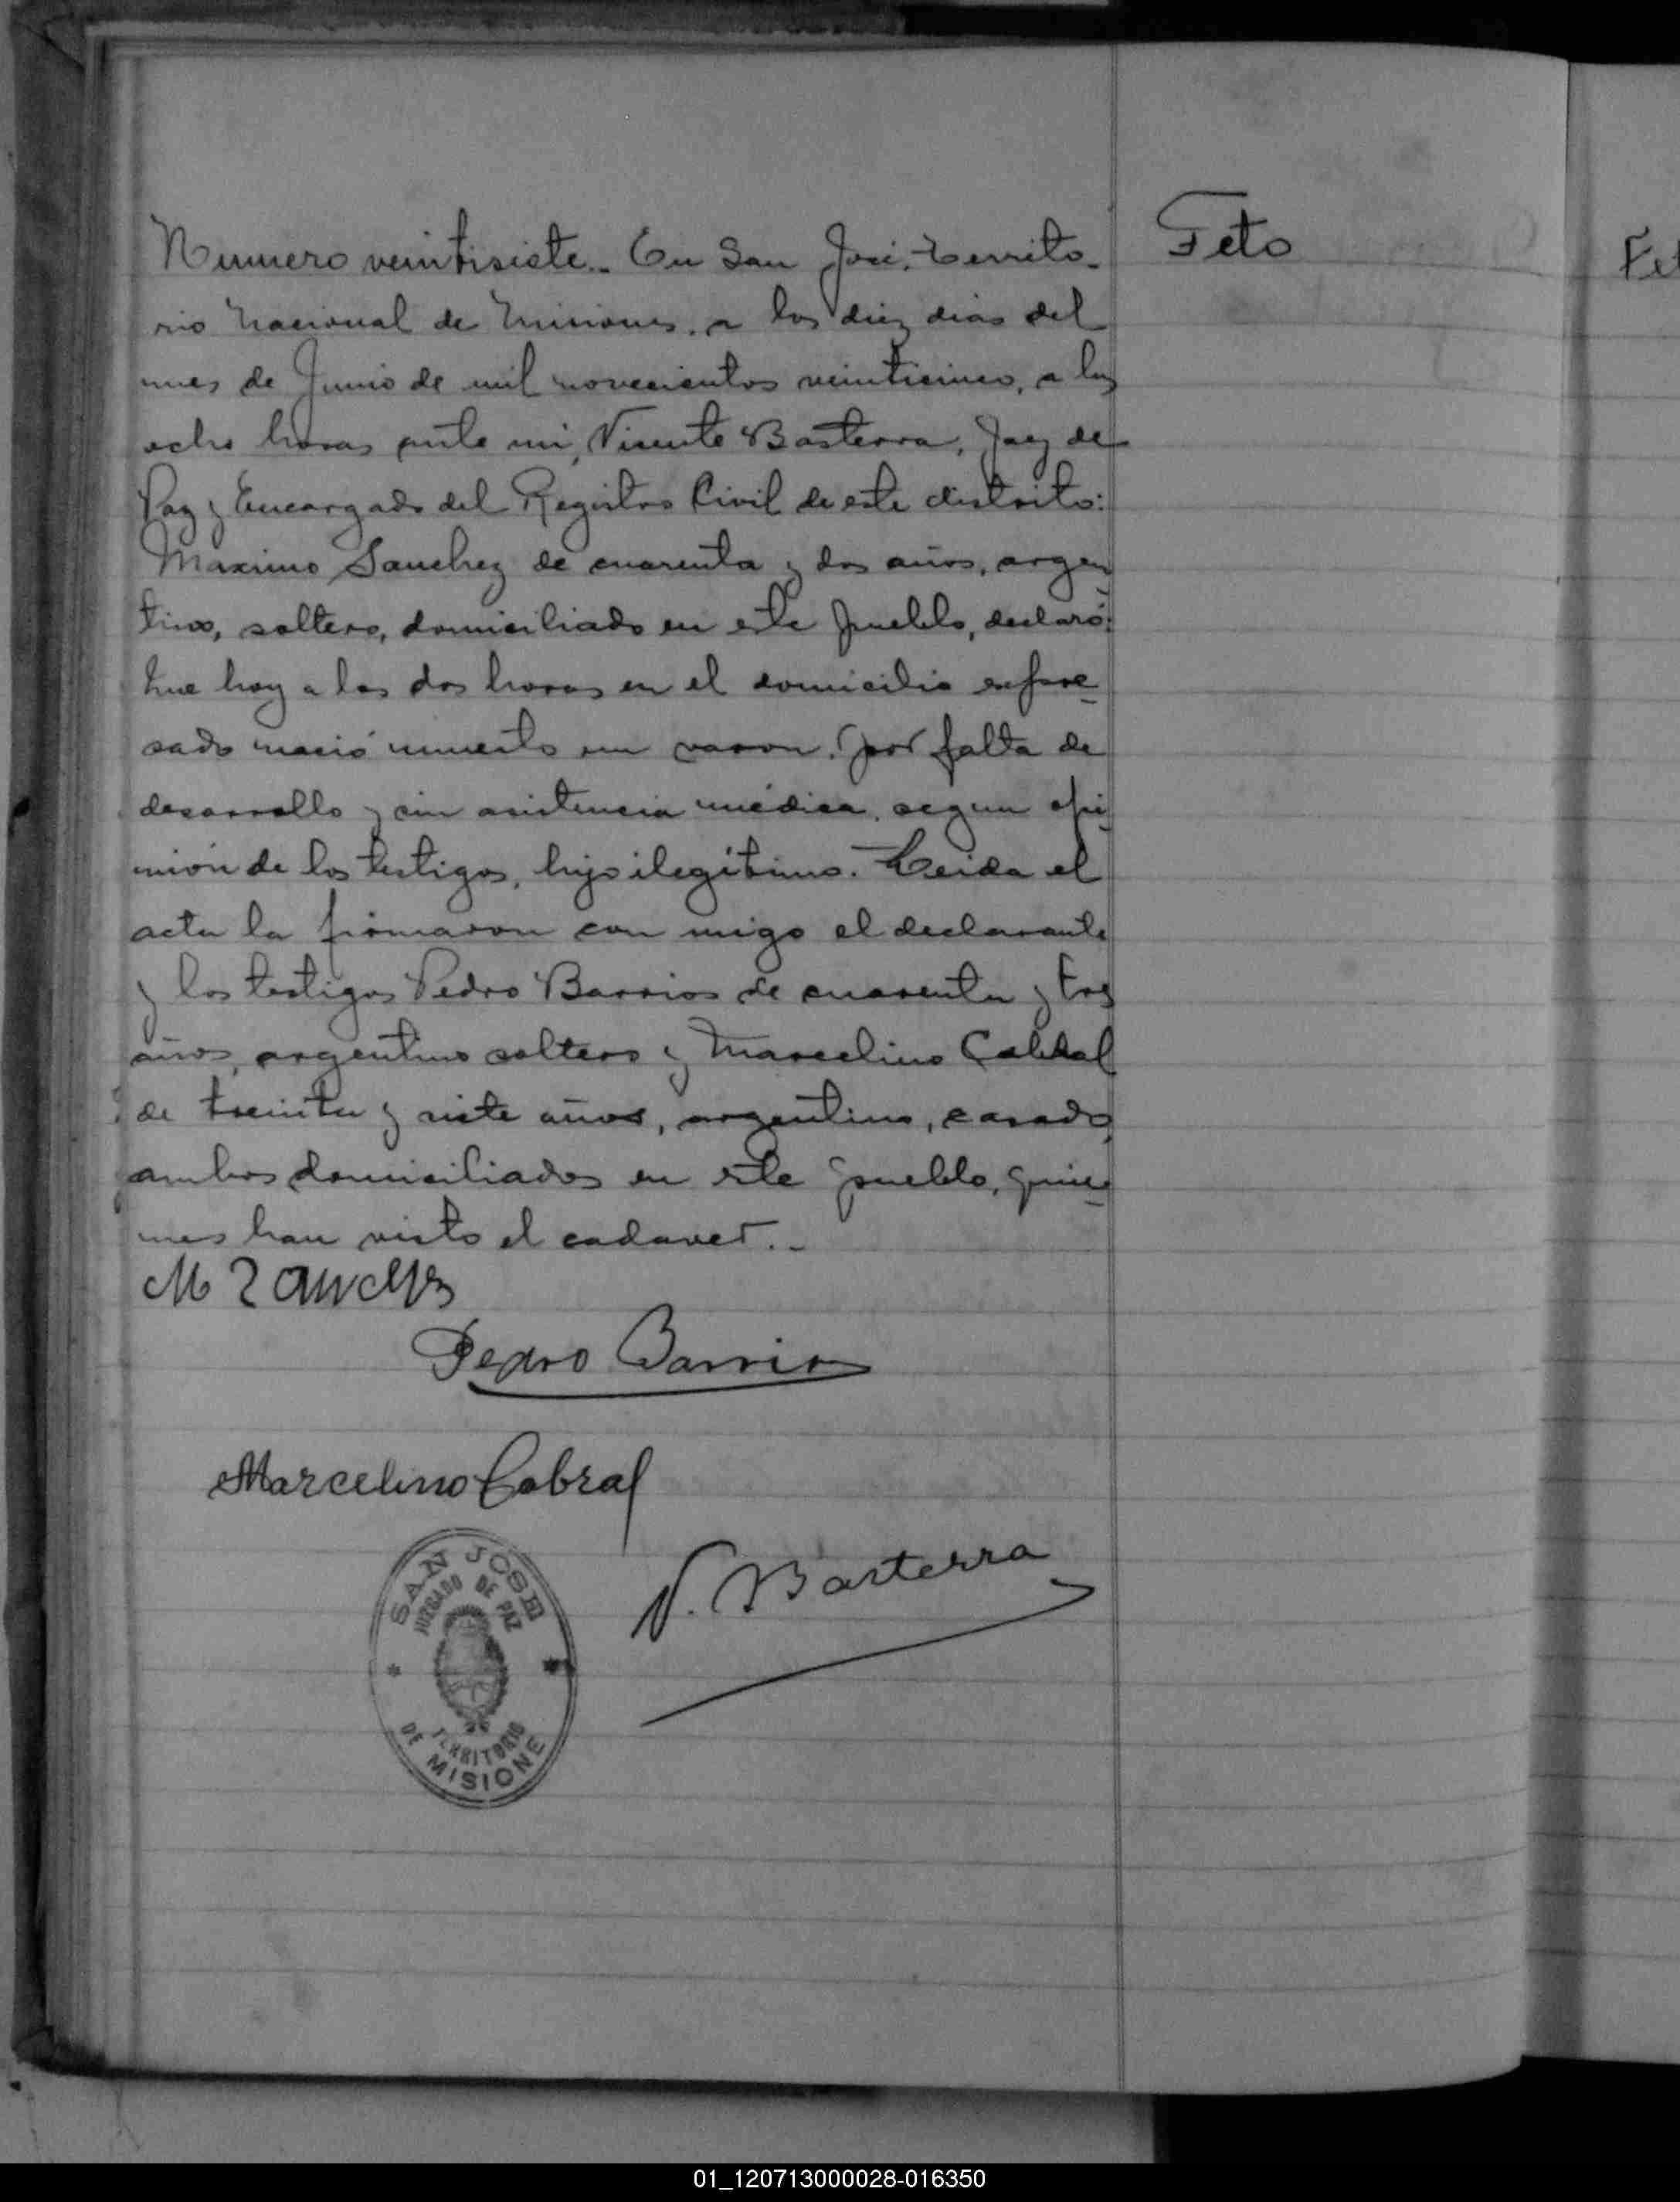 Numero veintisiete.- En San José, Territo-
rio Nacional de Misiones, a los diez dias del
mes de Junio de mil novecientos veinticinco, a las
ocho horas ante mi, Vicente Basterra, Juez de
Paz y Encargado del Registro Civil de este distrito:
Maximo Sanchez de cuarenta y dos años, argen-
tino, soltero, domiciliado en este pueblo, declaró:
Que hoy a las dos horas en el domicilio expre-
sado nació muerto un varon, por falta de
desarrollo y sin asistencia médica, segun opi-
nión de los testigos, hijo ilegitimo. Leida el
acta la firmaron con migo el declarante
y los testigos Pedro Barrios de cuarenta y tres
años, argentino soltero y Marcelino Cabral
de treinta y siete años, argentino, casado,
ambos domiciliados en este pueblo, quie-
nes han visto el cadaver.-
M Sanches
Pedro Barrios
Marcelino Cabral
V. Basterra
SAN JOSE
JUZGADO DE PAZ
TERRITORIO
DE MISIONE
Feto
Fet
01_120713000028-016350